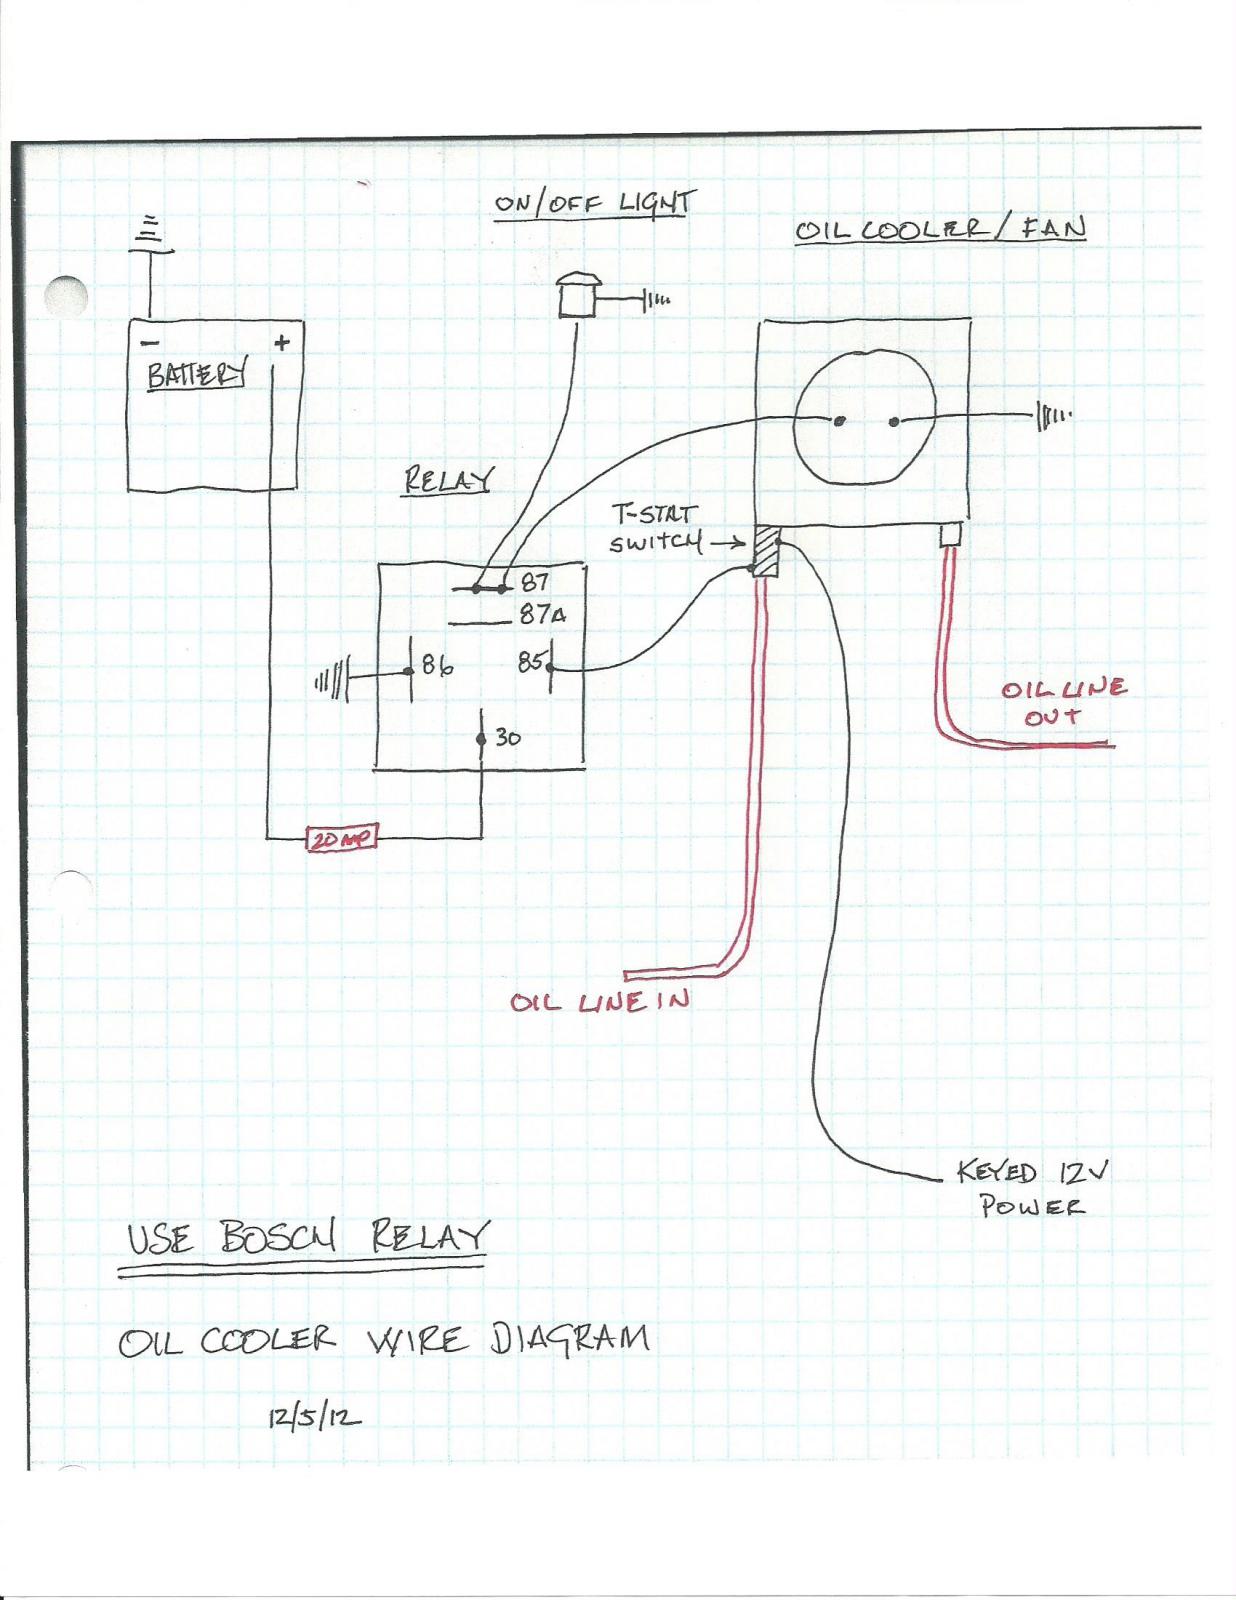 ON/OFF LIGHT
OIL COOLER/FAN
- +
BATTERY
RELAY
T-STAT
SWITCH →
87
87A
86
85
30
20 AMP
OIL LINE
OUT
OIL LINE IN
KEYED 12V
POWER
USE BOSCH RELAY
OIL COOLER WIRE DIAGRAM
12/5/12